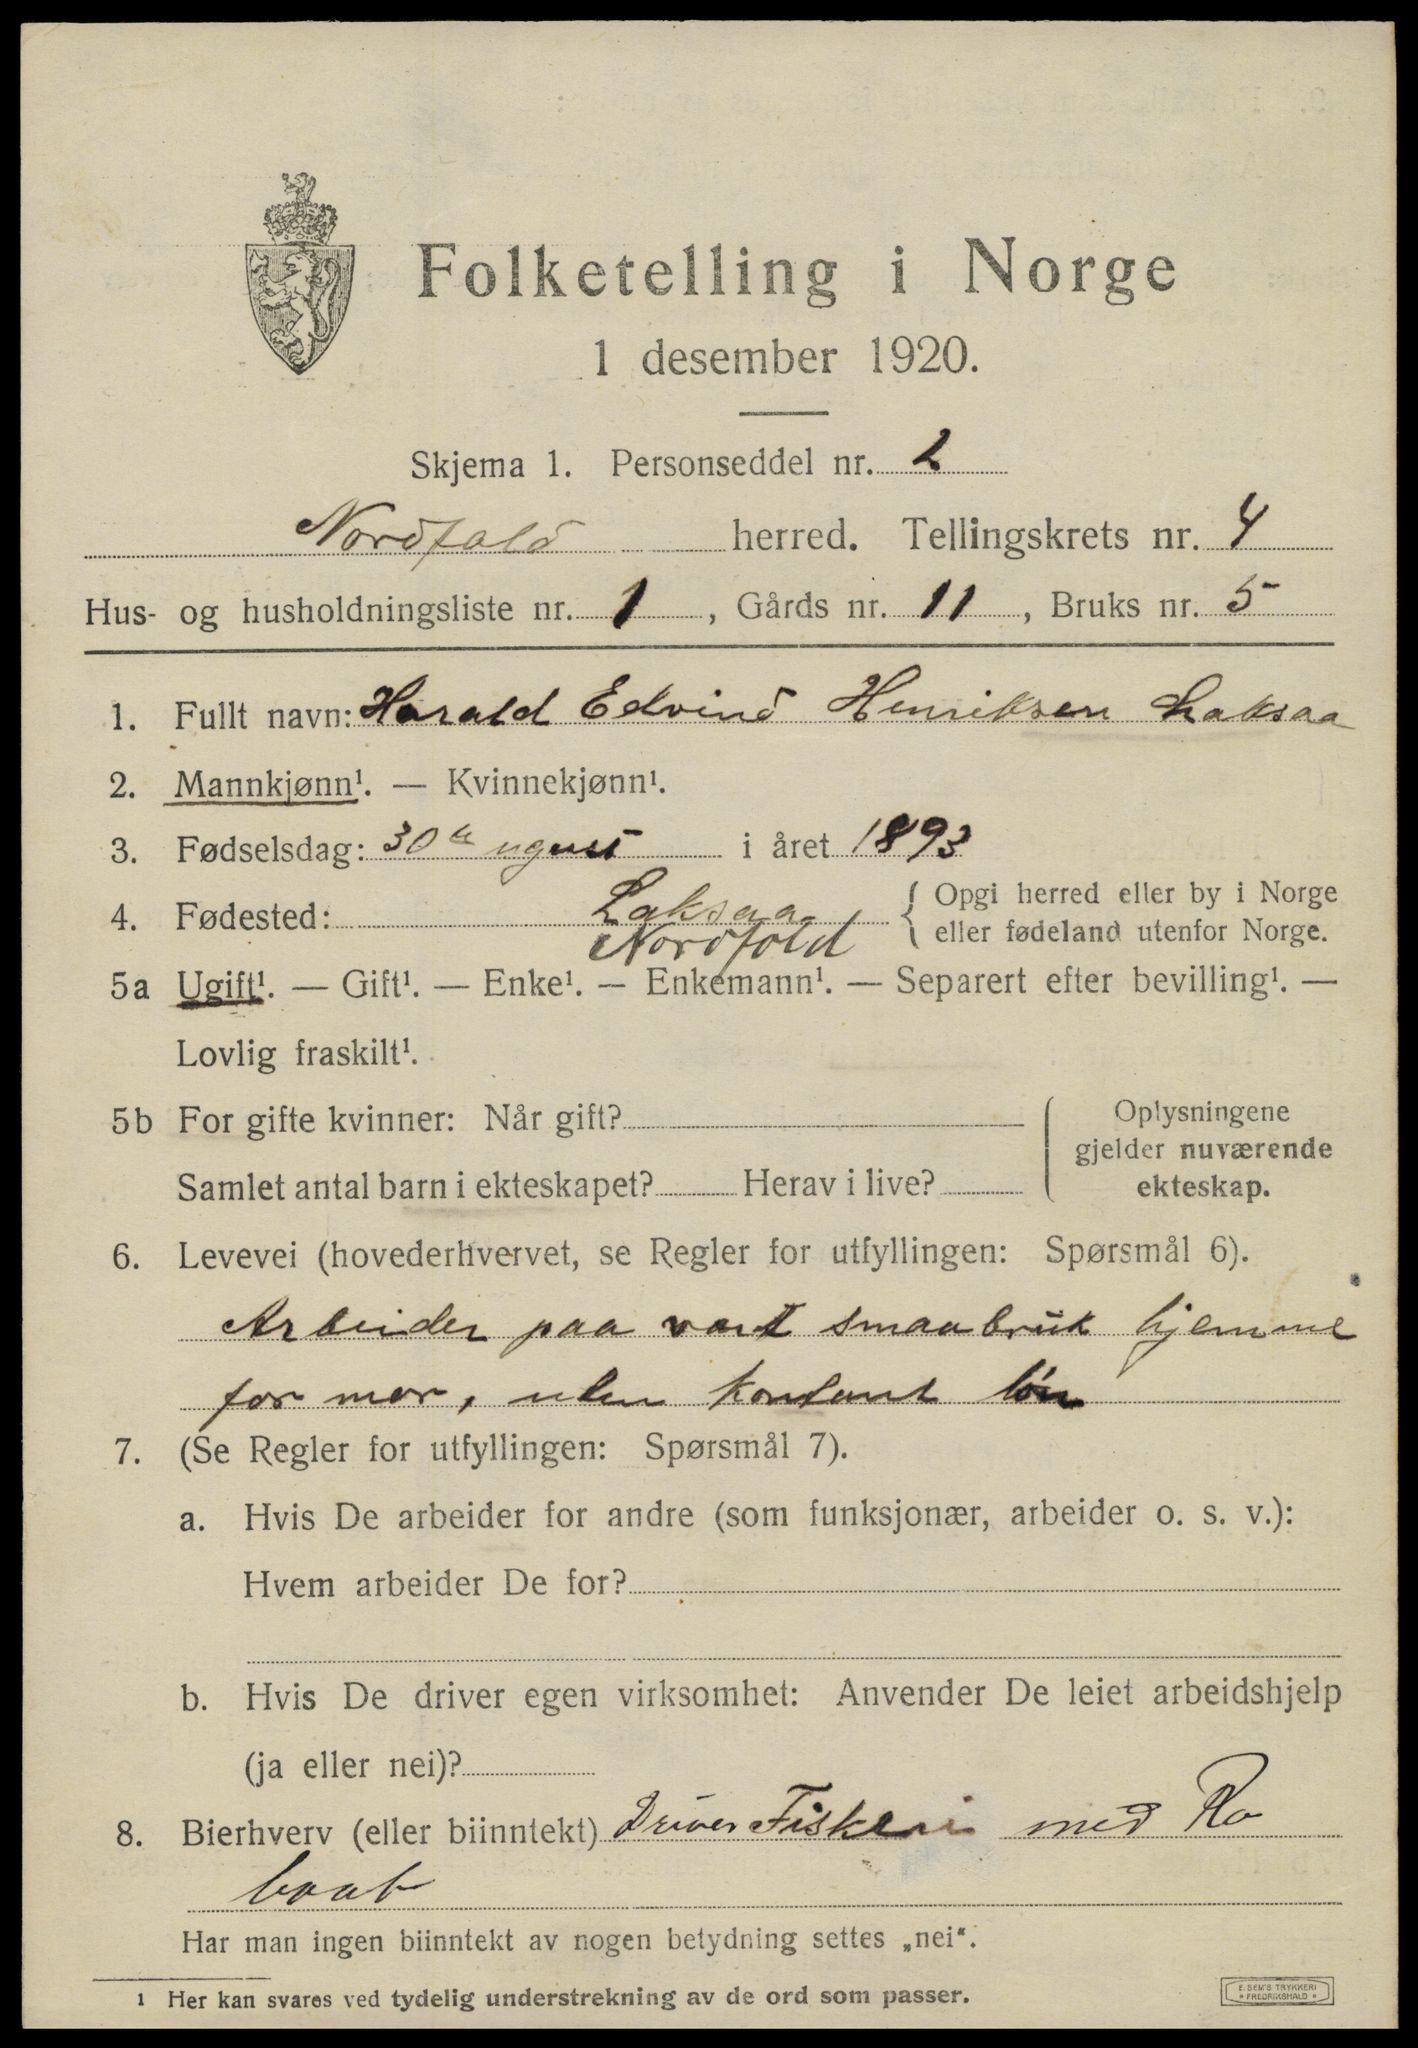 Folketelling i Norge
1 desember 1920.
Skjema 1. Personseddel nr. 2
Nordfold herred. Tellingskrets nr. 4
Hus- og husholdningsliste nr. 1, Gårds nr. 11, Bruks nr. 5
1. Fullt navn: Harald Edvind Henriksen Laksaa
2. Mannkjønn¹. — Kvinnekjønn¹.
3. Fødselsdag: 30te ugust i året 1893
4. Fødested: Laksaa, Nordfold { Opgi herred eller by i Norge
eller fødeland utenfor Norge.
5a Ugift¹. — Gift¹. — Enke¹. — Enkemann¹. — Separert efter bevilling¹. —
Lovlig fraskilt¹.
5b For gifte kvinner: Når gift? { Oplysningene
gjelder nuværende
Samlet antal barn i ekteskapet? Herav i live? ekteskap.
6. Levevei (hovederhvervet, se Regler for utfyllingen: Spørsmål 6).
Arbeider paa vort smaabruk hjemme
for mor, uten kontant løn
7. (Se Regler for utfyllingen: Spørsmål 7).
a. Hvis De arbeider for andre (som funksjonær, arbeider o. s. v.):
Hvem arbeider De for?
b. Hvis De driver egen virksomhet: Anvender De leiet arbeidshjelp
(ja eller nei)?
8. Bierhverv (eller biinntekt) Driver Fiskeri med Ro
baat
Har man ingen biinntekt av nogen betydning settes „nei“.
1 Her kan svares ved tydelig understrekning av de ord som passer.
E. SEM'S TRYKKERI
* FREDRIKSHALD *